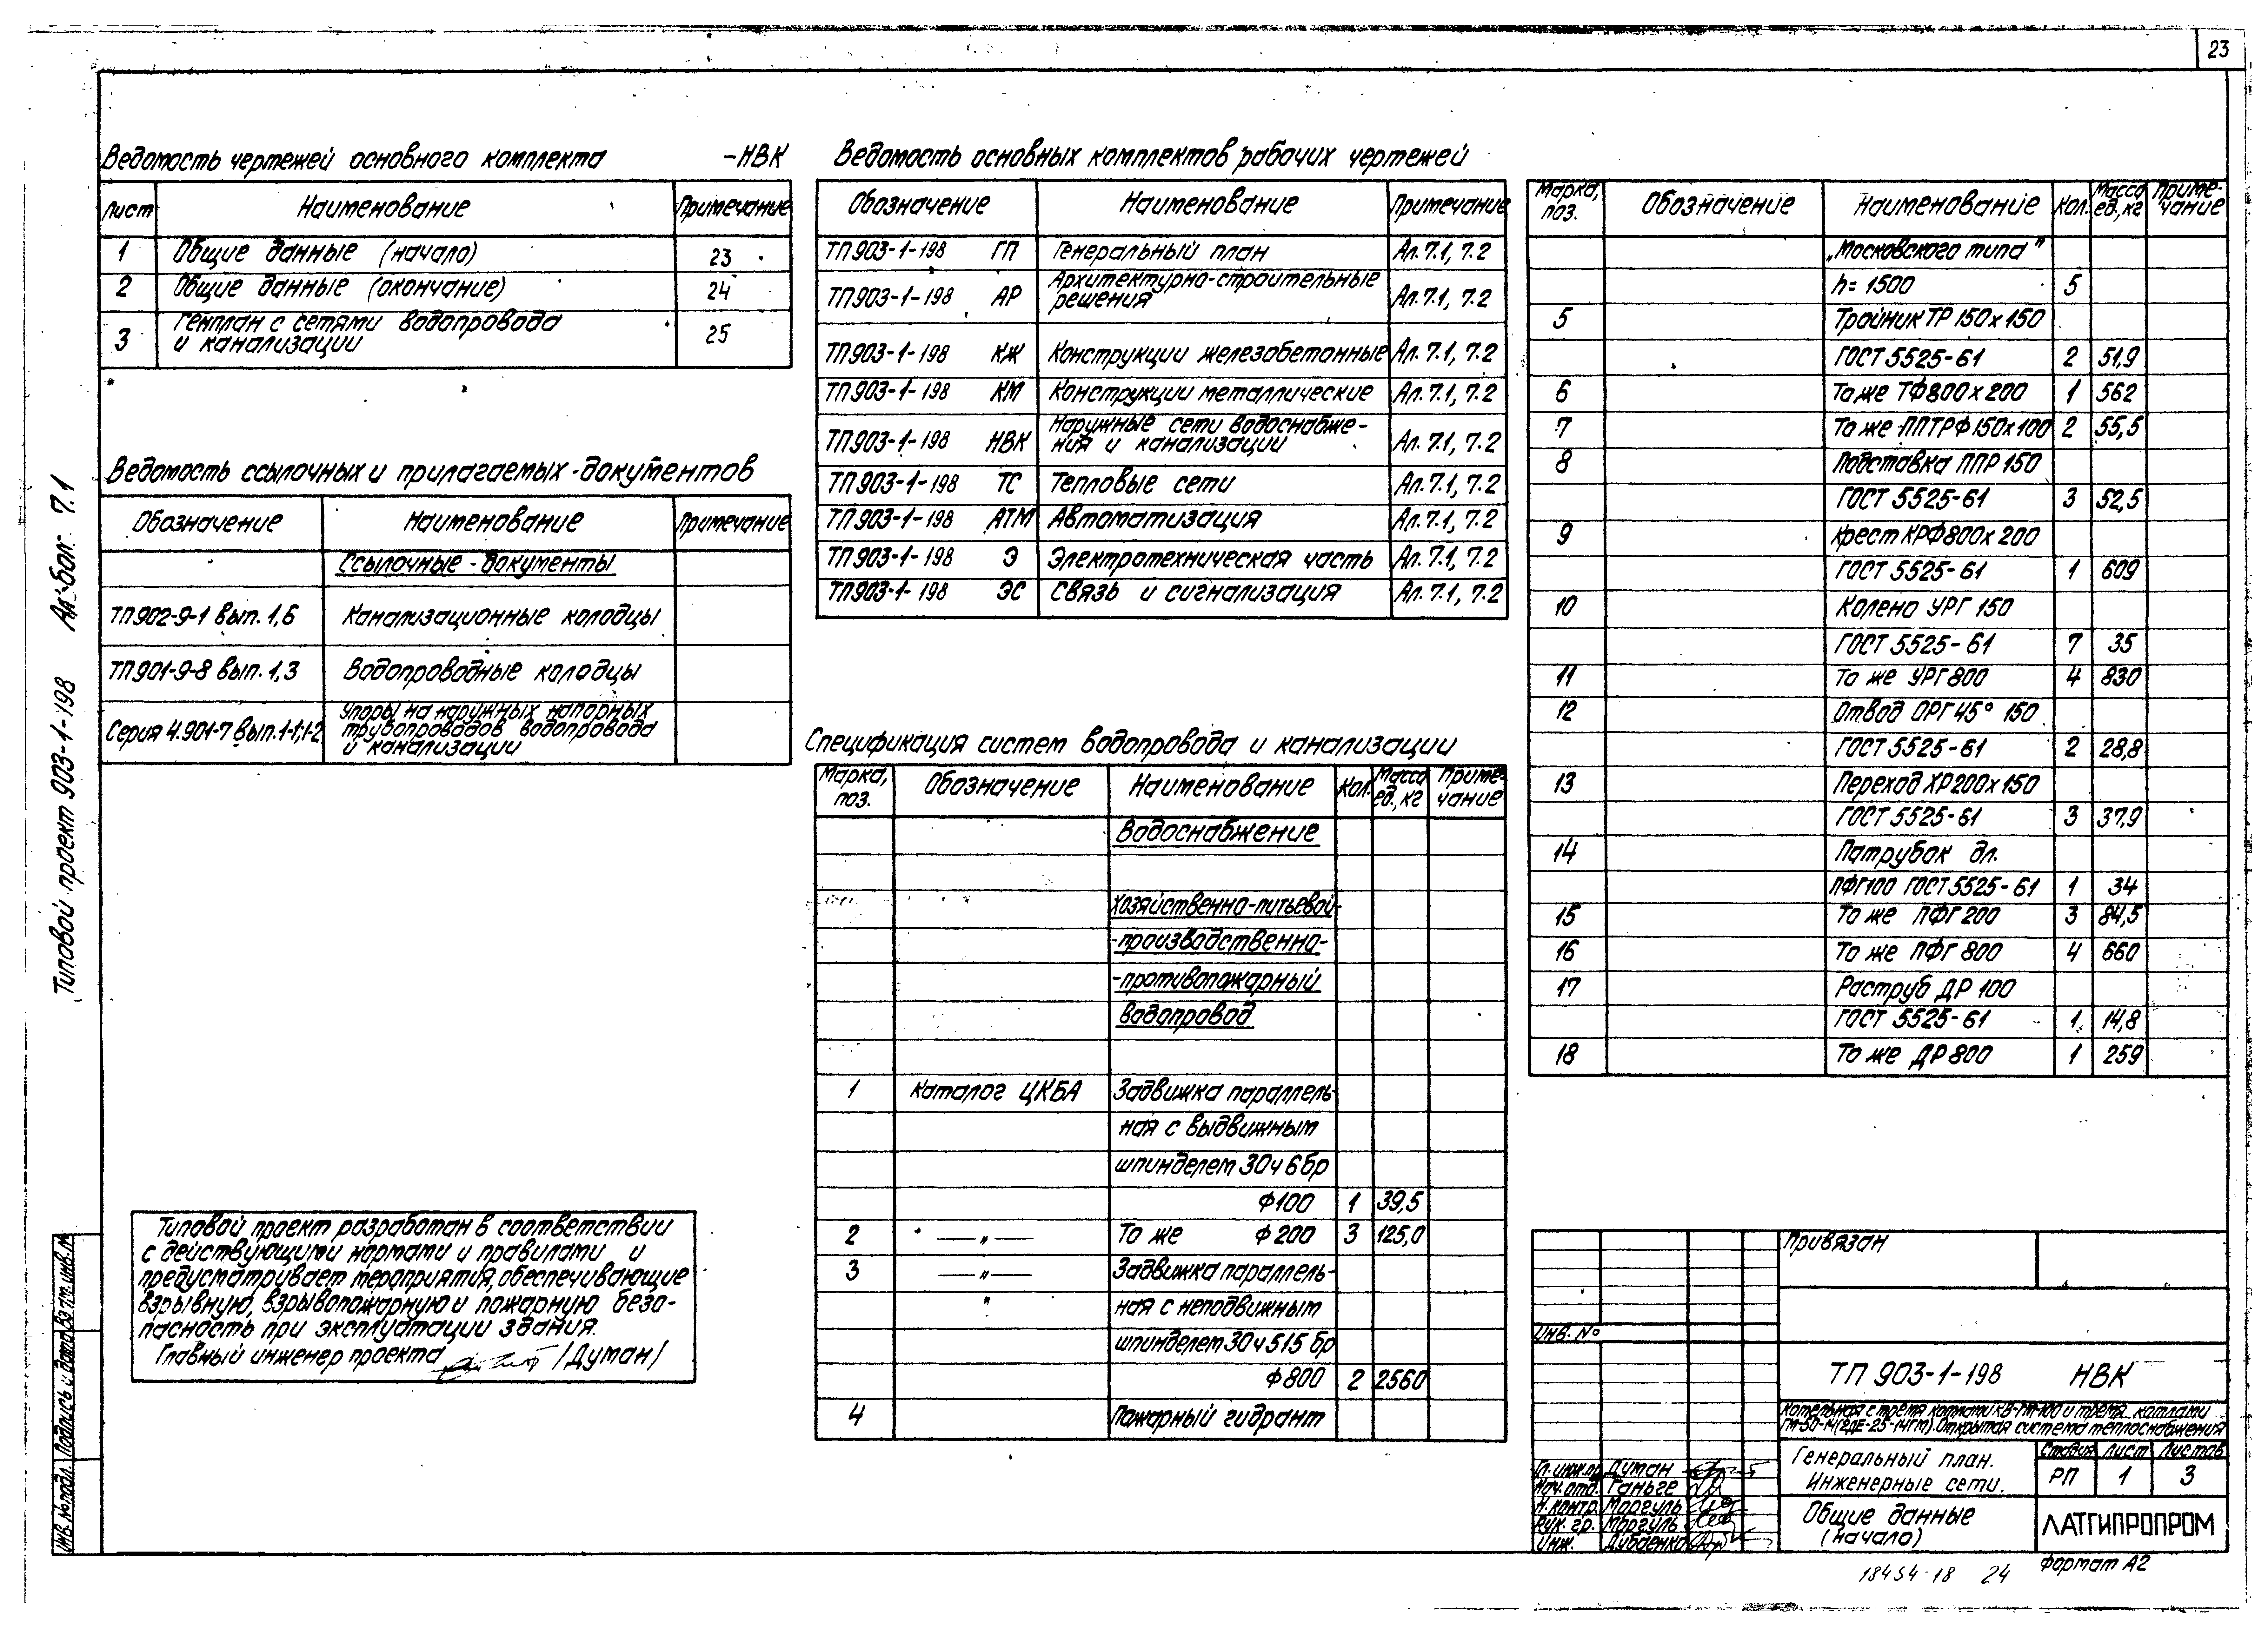 23
Ведомость чертежей основного комплекта -НВК
Лист Наименование Примечание
1 Общие данные (начало) 23
2 Общие данные (окончание) 24
Генплан с сетями водопровода
3 и канализации 25
Ведомость ссылочных и прилагаемых документов
Обозначение Наименование Примечание
Ссылочные документы
ТП902-9-1 вып. 1,6 Канализационные колодцы
ТП901-9-8 вып. 1,3 Водопроводные колодцы
Упоры на наружных напорных
Серия 4.901-7 вып.1-1;1-2 трубопроводов водопровода
и канализации
Типовой проект разработан в соответствии
с действующими нормами и правилами и
предусматривает мероприятия, обеспечивающие
взрывную, взрывопожарную и пожарную безо-
пасность при эксплуатации здания.
Главный инженер проекта /Думан/
Типовой проект 903-1-198 Альбом 7.1
Инв. № подл. Подпись и дата Вз ти. инв. №
Ведомость основных комплектов рабочих чертежей
Обозначение Наименование Примечание
ТП903-1-198 ГП Генеральный план Ал.7.1, 7.2
Архитектурно-строительные
ТП903-1-198 АР решения Ал.7.1, 7.2
ТП903-1-198 КЖ Конструкции железобетонные Ал.7.1, 7.2
ТП903-1-198 КМ Конструкции металлические Ал.7.1, 7.2
Наружные сети водоснабже-
ТП903-1-198 НВК ния и канализации Ал.7.1, 7.2
ТП903-1-198 ТС Тепловые сети Ал.7.1, 7.2
ТП903-1-198 АТМ Автоматизация Ал.7.1, 7.2
ТП903-1-198 Э Электротехническая часть Ал.7.1, 7.2
ТП903-1-198 ЭС Связь и сигнализация Ал.7.1, 7.2
Спецификация систем водопровода и канализации
Марка, поз. Обозначение Наименование Кол. Масса ед., кг Приме-чание
Водоснабжение
Хозяйственно-питьевой-
-производственно-
-противопожарный
водопровод
1 Каталог ЦКБА Задвижка параллель-
ная с выдвижным
шпинделем 30ч6бр
Ф100 1 39,5
2 —„— То же Ф200 3 125,0
3 —„— Задвижка параллель-
„ ная с неподвижным
шпинделем 30ч515бр
Ф800 2 2560
4 Пожарный гидрант
Марка, поз. Обозначение Наименование Кол. Масса ед., кг Приме-чание
„Московского типа"
h=1500 5
5 Тройник ТР 150х150
ГОСТ 5525-61 2 51,9
6 То же ТФ800х200 1 562
7 То же ППТРФ150х100 2 55,5
8 Подставка ППР 150
ГОСТ 5525-61 3 52,5
9 Крест КРФ800х200
ГОСТ 5525-61 1 609
10 Колено УРГ 150
ГОСТ 5525-61 7 35
11 То же УРГ800 4 830
12 Отвод ОРГ45° 150
ГОСТ 5525-61 2 28,8
13 Переход ХР200х150
ГОСТ 5525-61 3 37,9
14 Патрубок дл.
ПФГ100 ГОСТ5525-61 1 34
15 То же ПФГ 200 3 84,5
16 То же ПФГ 800 4 660
17 Раструб ДР 100
ГОСТ 5525-61 1 14,8
18 То же ДР800 1 259
Привязан
Инв. №
ТП 903-1-198 НВК
Котельная с тремя котлами КВ-ГМ-100 и тремя котлами
ГМ-50-14(2ДЕ-25-14ГМ). Открытая система теплоснабжения
Генеральный план.
Инженерные сети.
Стадия Лист Листов
РП 1 3
Гл. инж. пр. Думан
Нач. отд. Ганьге
Н. контр. Моргуль
Рук. гр. Моргуль
Инж. Дубаенко
Общие данные
(начало)
ЛАТГИПРОПРОМ
18454-18 24 Формат А2